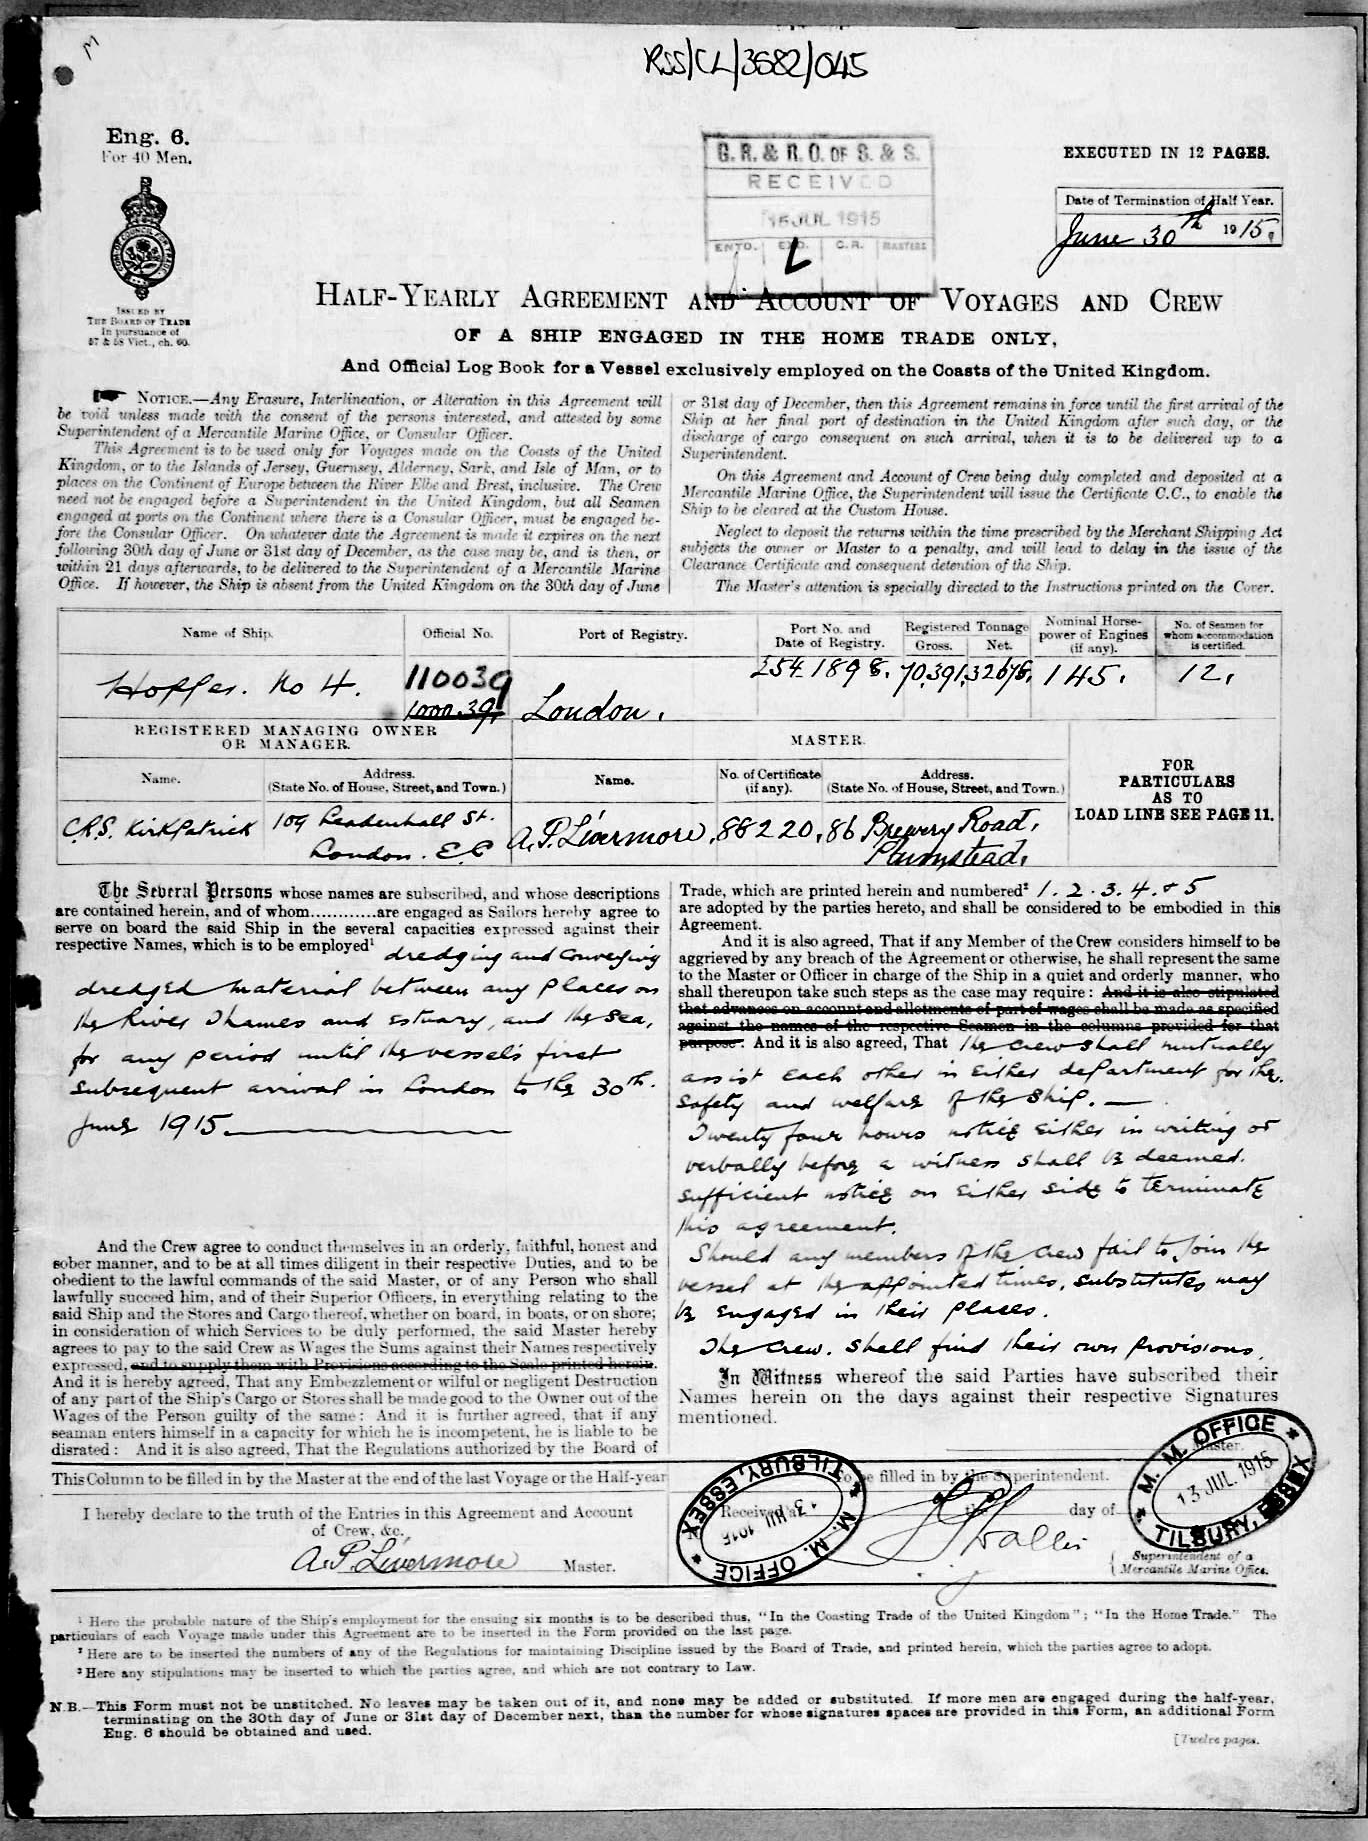 RSS/CL/3682/045
Eng. 6.
For 40 Men.
ISSUED BY
THE BOARD OF TRADE
In pursuance of
57 & 58 Vict., ch. 60.
G. R. & R. O. OF S. & S.
RECEIVED
15 JUL 1915
ENTD. EXD. C.R. MASTERS
L
EXECUTED IN 12 PAGES.
Date of Termination of Half Year.
June 30th 1915.
HALF-YEARLY AGREEMENT AND ACCOUNT OF VOYAGES AND CREW
OF A SHIP ENGAGED IN THE HOME TRADE ONLY,
And Official Log Book for a Vessel exclusively employed on the Coasts of the United Kingdom.
NOTICE.—Any Erasure, Interlineation, or Alteration in this Agreement will
be void unless made with the consent of the persons interested, and attested by some
Superintendent of a Mercantile Marine Office, or Consular Officer.
This Agreement is to be used only for Voyages made on the Coasts of the United
Kingdom, or to the Islands of Jersey, Guernsey, Alderney, Sark, and Isle of Man, or to
places on the Continent of Europe between the River Elbe and Brest, inclusive. The Crew
need not be engaged before a Superintendent in the United Kingdom, but all Seamen
engaged at ports on the Continent where there is a Consular Officer, must be engaged be-
fore the Consular Officer. On whatever date the Agreement is made it expires on the next
following 30th day of June or 31st day of December, as the case may be, and is then, or
within 21 days afterwards, to be delivered to the Superintendent of a Mercantile Marine
Office. If however, the Ship is absent from the United Kingdom on the 30th day of June
or 31st day of December, then this Agreement remains in force until the first arrival of the
Ship at her final port of destination in the United Kingdom after such day, or the
discharge of cargo consequent on such arrival, when it is to be delivered up to a
Superintendent.
On this Agreement and Account of Crew being duly completed and deposited at a
Mercantile Marine Office, the Superintendent will issue the Certificate C.C., to enable the
Ship to be cleared at the Custom House.
Neglect to deposit the returns within the time prescribed by the Merchant Shipping Act
subjects the owner or Master to a penalty, and will lead to delay in the issue of the
Clearance Certificate and consequent detention of the Ship.
The Master's attention is specially directed to the Instructions printed on the Cover.
Name of Ship. Official No. Port of Registry. Port No. and Date of Registry. Registered Tonnage Gross. Net. Nominal Horse-power of Engines (if any). No. of Seamen for whom accommodation is certified.
Hopper. No 4. 110039 London. 254 1898. 145. 12.
1000.39.
REGISTERED MANAGING OWNER
OR MANAGER.
MASTER.
Name. Address. (State No. of House, Street, and Town.) Name. No. of Certificate (if any). Address. (State No. of House, Street, and Town.)
FOR
PARTICULARS
AS TO
LOAD LINE SEE PAGE 11.
C.R.S. Kirkpatrick 109 Leadenhall St. A.P. Livermore. 88220. 86 Brewery Road,
London. E.C Plumstead.
The Several Persons whose names are subscribed, and whose descriptions
are contained herein, and of whom.............are engaged as Sailors hereby agree to
serve on board the said Ship in the several capacities expressed against their
respective Names, which is to be employed¹ dredging and Conveying
dredged material between any places on
the River Thames and Estuary, and the sea,
for any period until the vessel's first
subsequent arrival in London to the 30th.
June 1915.
And the Crew agree to conduct themselves in an orderly, faithful, honest and
sober manner, and to be at all times diligent in their respective Duties, and to be
obedient to the lawful commands of the said Master, or of any Person who shall
lawfully succeed him, and of their Superior Officers, in everything relating to the
said Ship and the Stores and Cargo thereof, whether on board, in boats, or on shore;
in consideration of which Services to be duly performed, the said Master hereby
agrees to pay to the said Crew as Wages the Sums against their Names respectively
expressed, and to supply them with Provisions according to the Scale printed herein.
And it is hereby agreed, That any Embezzlement or wilful or negligent Destruction
of any part of the Ship's Cargo or Stores shall be made good to the Owner out of the
Wages of the Person guilty of the same: And it is further agreed, that if any
seaman enters himself in a capacity for which he is incompetent, he is liable to be
disrated: And it is also agreed, That the Regulations authorized by the Board of
Trade, which are printed herein and numbered² 1. 2. 3. 4. & 5
are adopted by the parties hereto, and shall be considered to be embodied in this
Agreement.
And it is also agreed, That if any Member of the Crew considers himself to be
aggrieved by any breach of the Agreement or otherwise, he shall represent the same
to the Master or Officer in charge of the Ship in a quiet and orderly manner, who
shall thereupon take such steps as the case may require: And it is also stipulated
that advances on account and allotments of part of wages shall be made as specified
against the names of the respective Seamen in the columns provided for that
purpose: And it is also agreed, That the crew shall mutually
assist each other in either department for the
safety and welfare of the ship.
Twenty four hours notice either in writing or
verbally before a witness shall be deemed.
sufficient notice on either side to terminate
this agreement.
Should any members of the crew fail to join the
vessel at the appointed times, substitutes may
be engaged in their places.
The Crew. shall find their own provisions.
In Witness whereof the said Parties have subscribed their
Names herein on the days against their respective Signatures
mentioned.
Master.
This Column to be filled in by the Master at the end of the last Voyage or the Half-year
To be filled in by the Superintendent.
I hereby declare to the truth of the Entries in this Agreement and Account
of Crew, &c.,
A.P. Livermore Master.
Received at
the day of
Superintendent of a
Mercantile Marine Office.
M. M. OFFICE
13 JUL 1915
TILBURY, ESSEX
M. M. OFFICE
13 JUL 1915
TILBURY, ESSEX
¹ Here the probable nature of the Ship's employment for the ensuing six months is to be described thus, "In the Coasting Trade of the United Kingdom"; "In the Home Trade." The
particulars of each Voyage made under this Agreement are to be inserted in the Form provided on the last page.
² Here are to be inserted the numbers of any of the Regulations for maintaining Discipline issued by the Board of Trade, and printed herein, which the parties agree to adopt.
³ Here any stipulations may be inserted to which the parties agree, and which are not contrary to Law.
N.B.—This Form must not be unstitched. No leaves may be taken out of it, and none may be added or substituted. If more men are engaged during the half-year,
terminating on the 30th day of June or 31st day of December next, than the number for whose signatures spaces are provided in this Form, an additional Form
Eng. 6 should be obtained and used.
[Twelve pages.